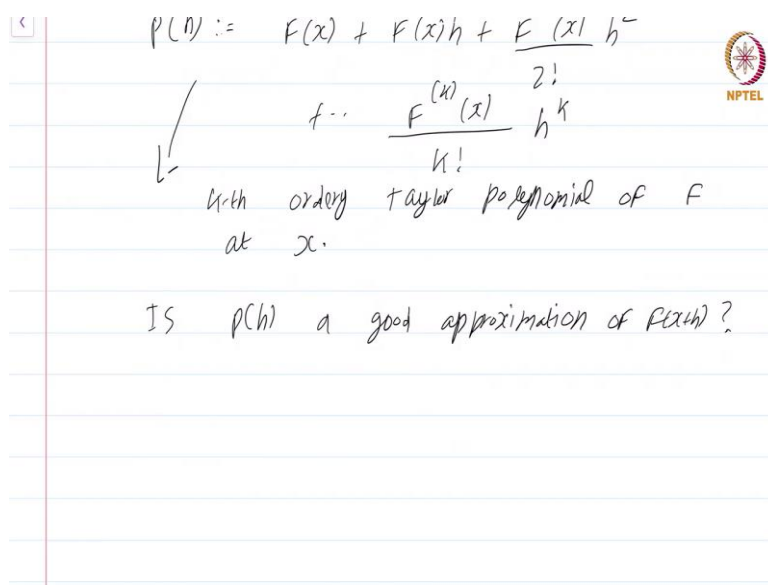 P(h) := F(x) + F(x)h + F (x) h²
2!
NPTEL
+ .. F^(k) (x) h^k
k!
k-th ordery taylor polynomial of F
at x.
Is p(h) a good approximation of F(x+h) ?